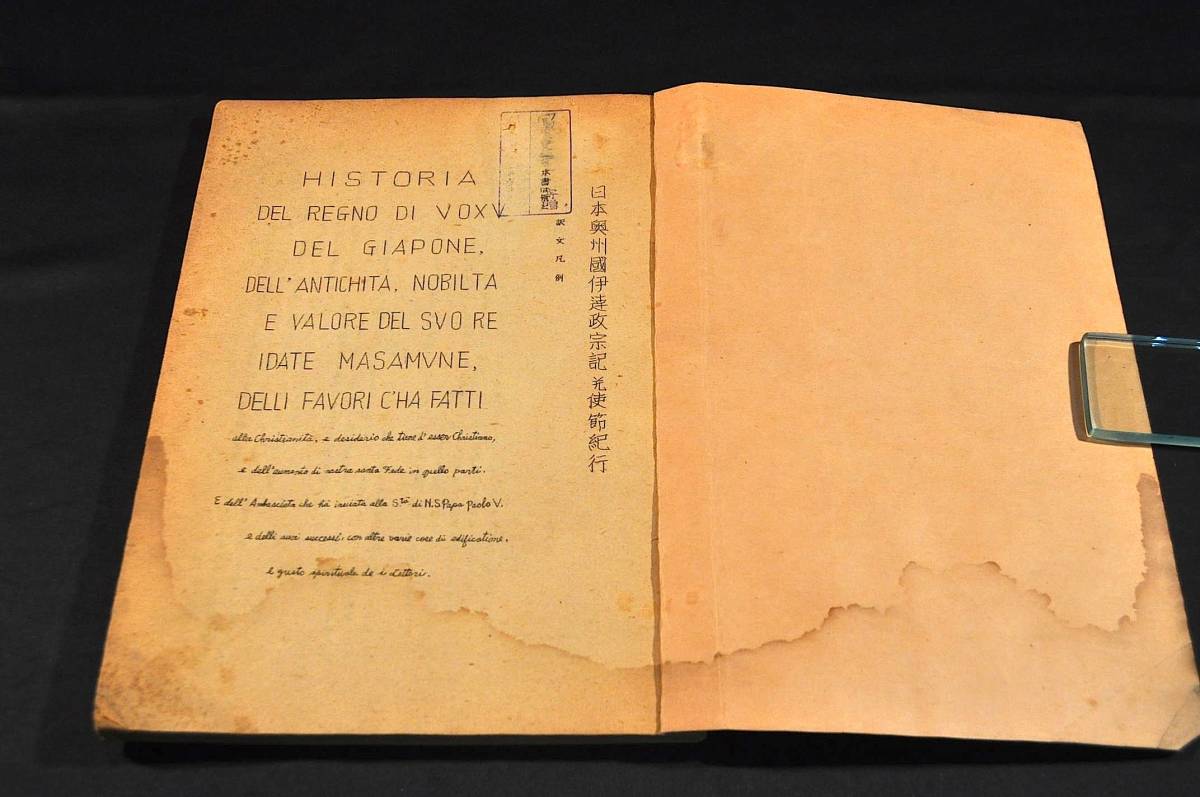 HISTORIA
DEL REGNO DI VOXV
DEL GIAPONE,
DELL'ANTICHITA, NOBILTA
E VALORE DEL SVO RE
IDATE MASAMVNE,
DELLI FAVORI C'HA FATTI
alla Christianità, e desiderio che tiene d'esser Christiano,
e dell'aumento di nostra santa Fede in quelle parti.
E dell'Ambasciata che hà inviata alla S.tà di N.S.Papa Paolo V.
e delli suoi successi, con altre varie cose di edificatione,
e gusto spirituale de i Lettori.
日本奥州國伊達政宗記并使節紀行
訳文凡例